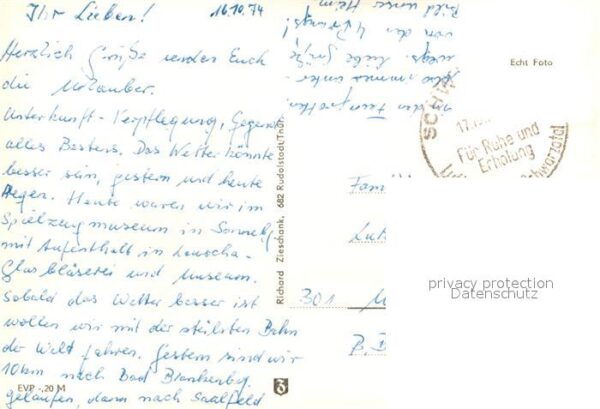 Ihr Lieben! 16.10.74
Herzlich Grüße senden Euch
die Urlauber.
Unterkunft - Verpflegung, Gegend
alles Bestens. Das Wetter könnte
besser sein, gestern und heute
Regen. Heute waren wir im
Spielzeugmuseum in Sonneberg
mit Aufenthalt in Lauscha-
Glasbläserei und Museum.
Sobald das Wetter besser ist
wollen wir mit der steilsten Bahn
der Welt fahren. Gestern sind wir
10km nach Bad Blankenbg.
gelaufen, dann nach Saalfeld
zu den Feengrotten.
immer unter-
wegs. Liebe Grüße
von den
Bild unser Heim
EVP -,20 M
Richard Zieschank, 682 Rudolstadt(Thür.
Echt Foto
17.10.
Für Ruhe und
Erholung
Schwarzatal
Fam
301
privacy protection
Datenschutz